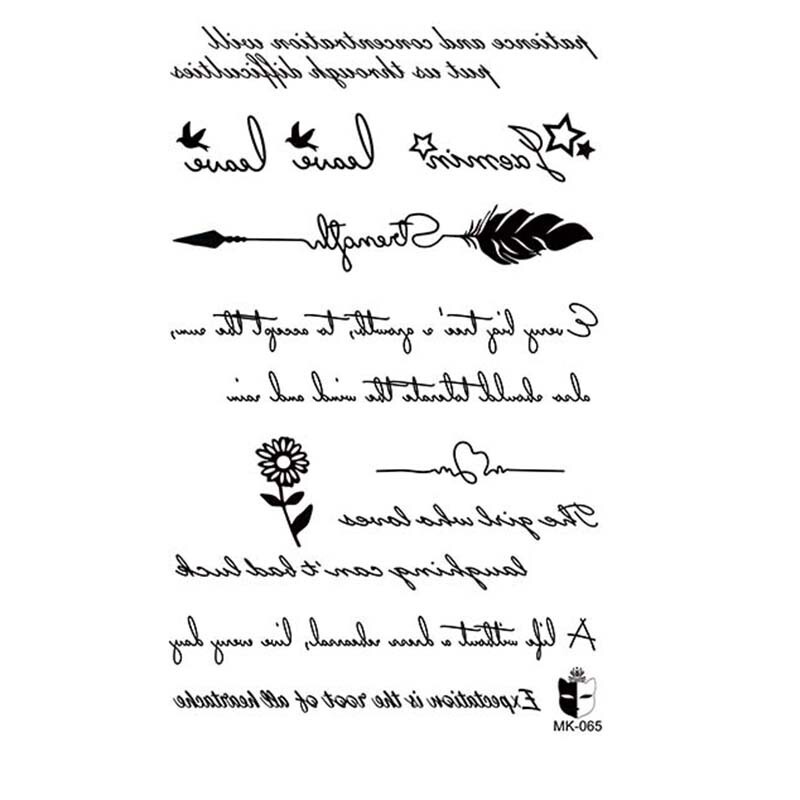 patience and concentration will
put us through difficulties
Jaemin leave leave
Strength
Every big tree's growth, to accept the sun,
also should tolerate the wind and rain
The girl who loves
laughing can't bad luck
A life without a dress rehearsal, live every day
Expectation is the root of all heartache
MK-065